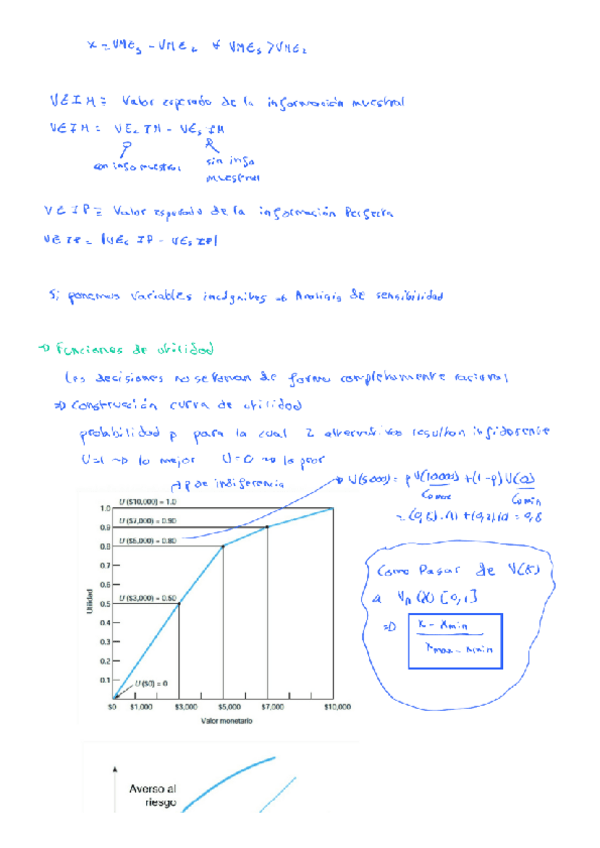 x = VME₃ - VME₂ ∀ VME₃ > VME₂
VEIM ≡ Valor esperado de la información muestral
VEIM = VE꜀IM - VEₛIM
con info muestral
sin info
muestral
VEIP ≡ Valor esperado de la información Perfecta
VEIP = |VE꜀IP - VEₛIP|
Si ponemos variables incógnitas → Análisis de sensibilidad
→ Funciones de utilidad
Las decisiones no se toman de forma completamente racional
⇒ Construcción curva de utilidad
probabilidad p para la cual 2 alternativas resultan indiferente
U=1 → lo mejor U=0 → lo peor
p de indiferencia
→ U(5000) = p U(10000) + (1-p) U(0)
Como Pasar de V(x)
a Vₙ(x) [0,1]
⇒ x - xmin
xmax - xmin
U ($10,000) = 1.0
U ($7,000) = 0.90
U ($5,000) = 0.80
U ($3,000) = 0.50
U ($0) = 0
Utilidad
1.0
0.9
0.8
0.7
0.6
0.5
0.4
0.3
0.2
0.1
$0 $1,000 $3,000 $5,000 $7,000 $10,000
Valor monetario
Averso al
riesgo